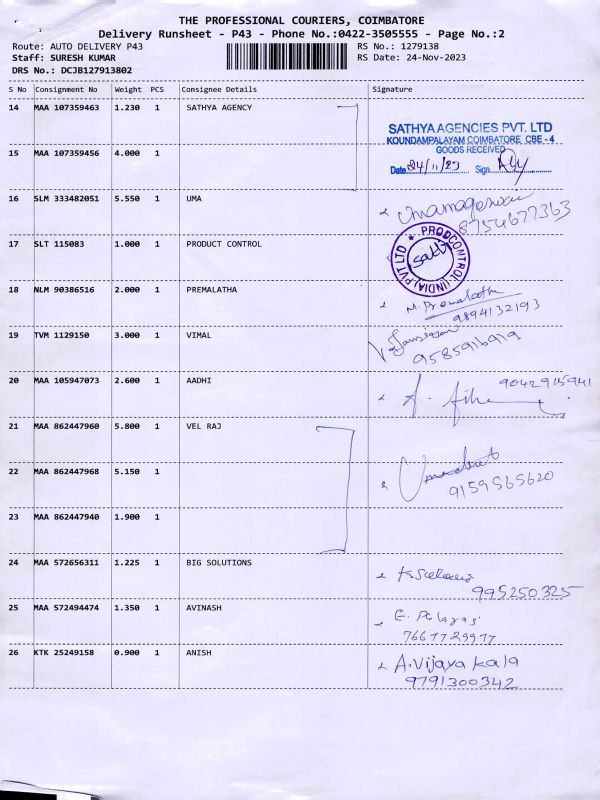 THE PROFESSIONAL COURIERS, COIMBATORE
Delivery Runsheet - P43 - Phone No.:0422-3505555 - Page No.:2
Route: AUTO DELIVERY P43 RS No.: 1279138
Staff: SURESH KUMAR RS Date: 24-Nov-2023
DRS No.: DCJB127913802
S No Consignment No Weight PCS Consignee Details Signature
14 MAA 107359463 1.230 1 SATHYA AGENCY
SATHYA AGENCIES PVT. LTD
KOUNDAMPALAYAM COIMBATORE CBE - 4
GOODS RECEIVED
15 MAA 107359456 4.000 1
Date 24/11/23 Sign
16 SLM 333482051 5.550 1 UMA
Umamageswari
8754677363
17 SLT 115083 1.000 1 PRODUCT CONTROL
PRODCONTROL (INDIA) PVT LTD
Sakthi
18 NLM 90386516 2.000 1 PREMALATHA
M. Premalatha
9894132193
19 TVM 1129150 3.000 1 VIMAL
9585916919
20 MAA 105947073 2.600 1 AADHI
9042915941
21 MAA 862447960 5.800 1 VEL RAJ
22 MAA 862447968 5.150 1
9159565620
23 MAA 862447940 1.900 1
24 MAA 572656311 1.225 1 BIG SOLUTIONS
995250325
25 MAA 572494474 1.350 1 AVINASH
7667729977
26 KTK 25249158 0.900 1 ANISH
A. Vijaya Kala
9791300342